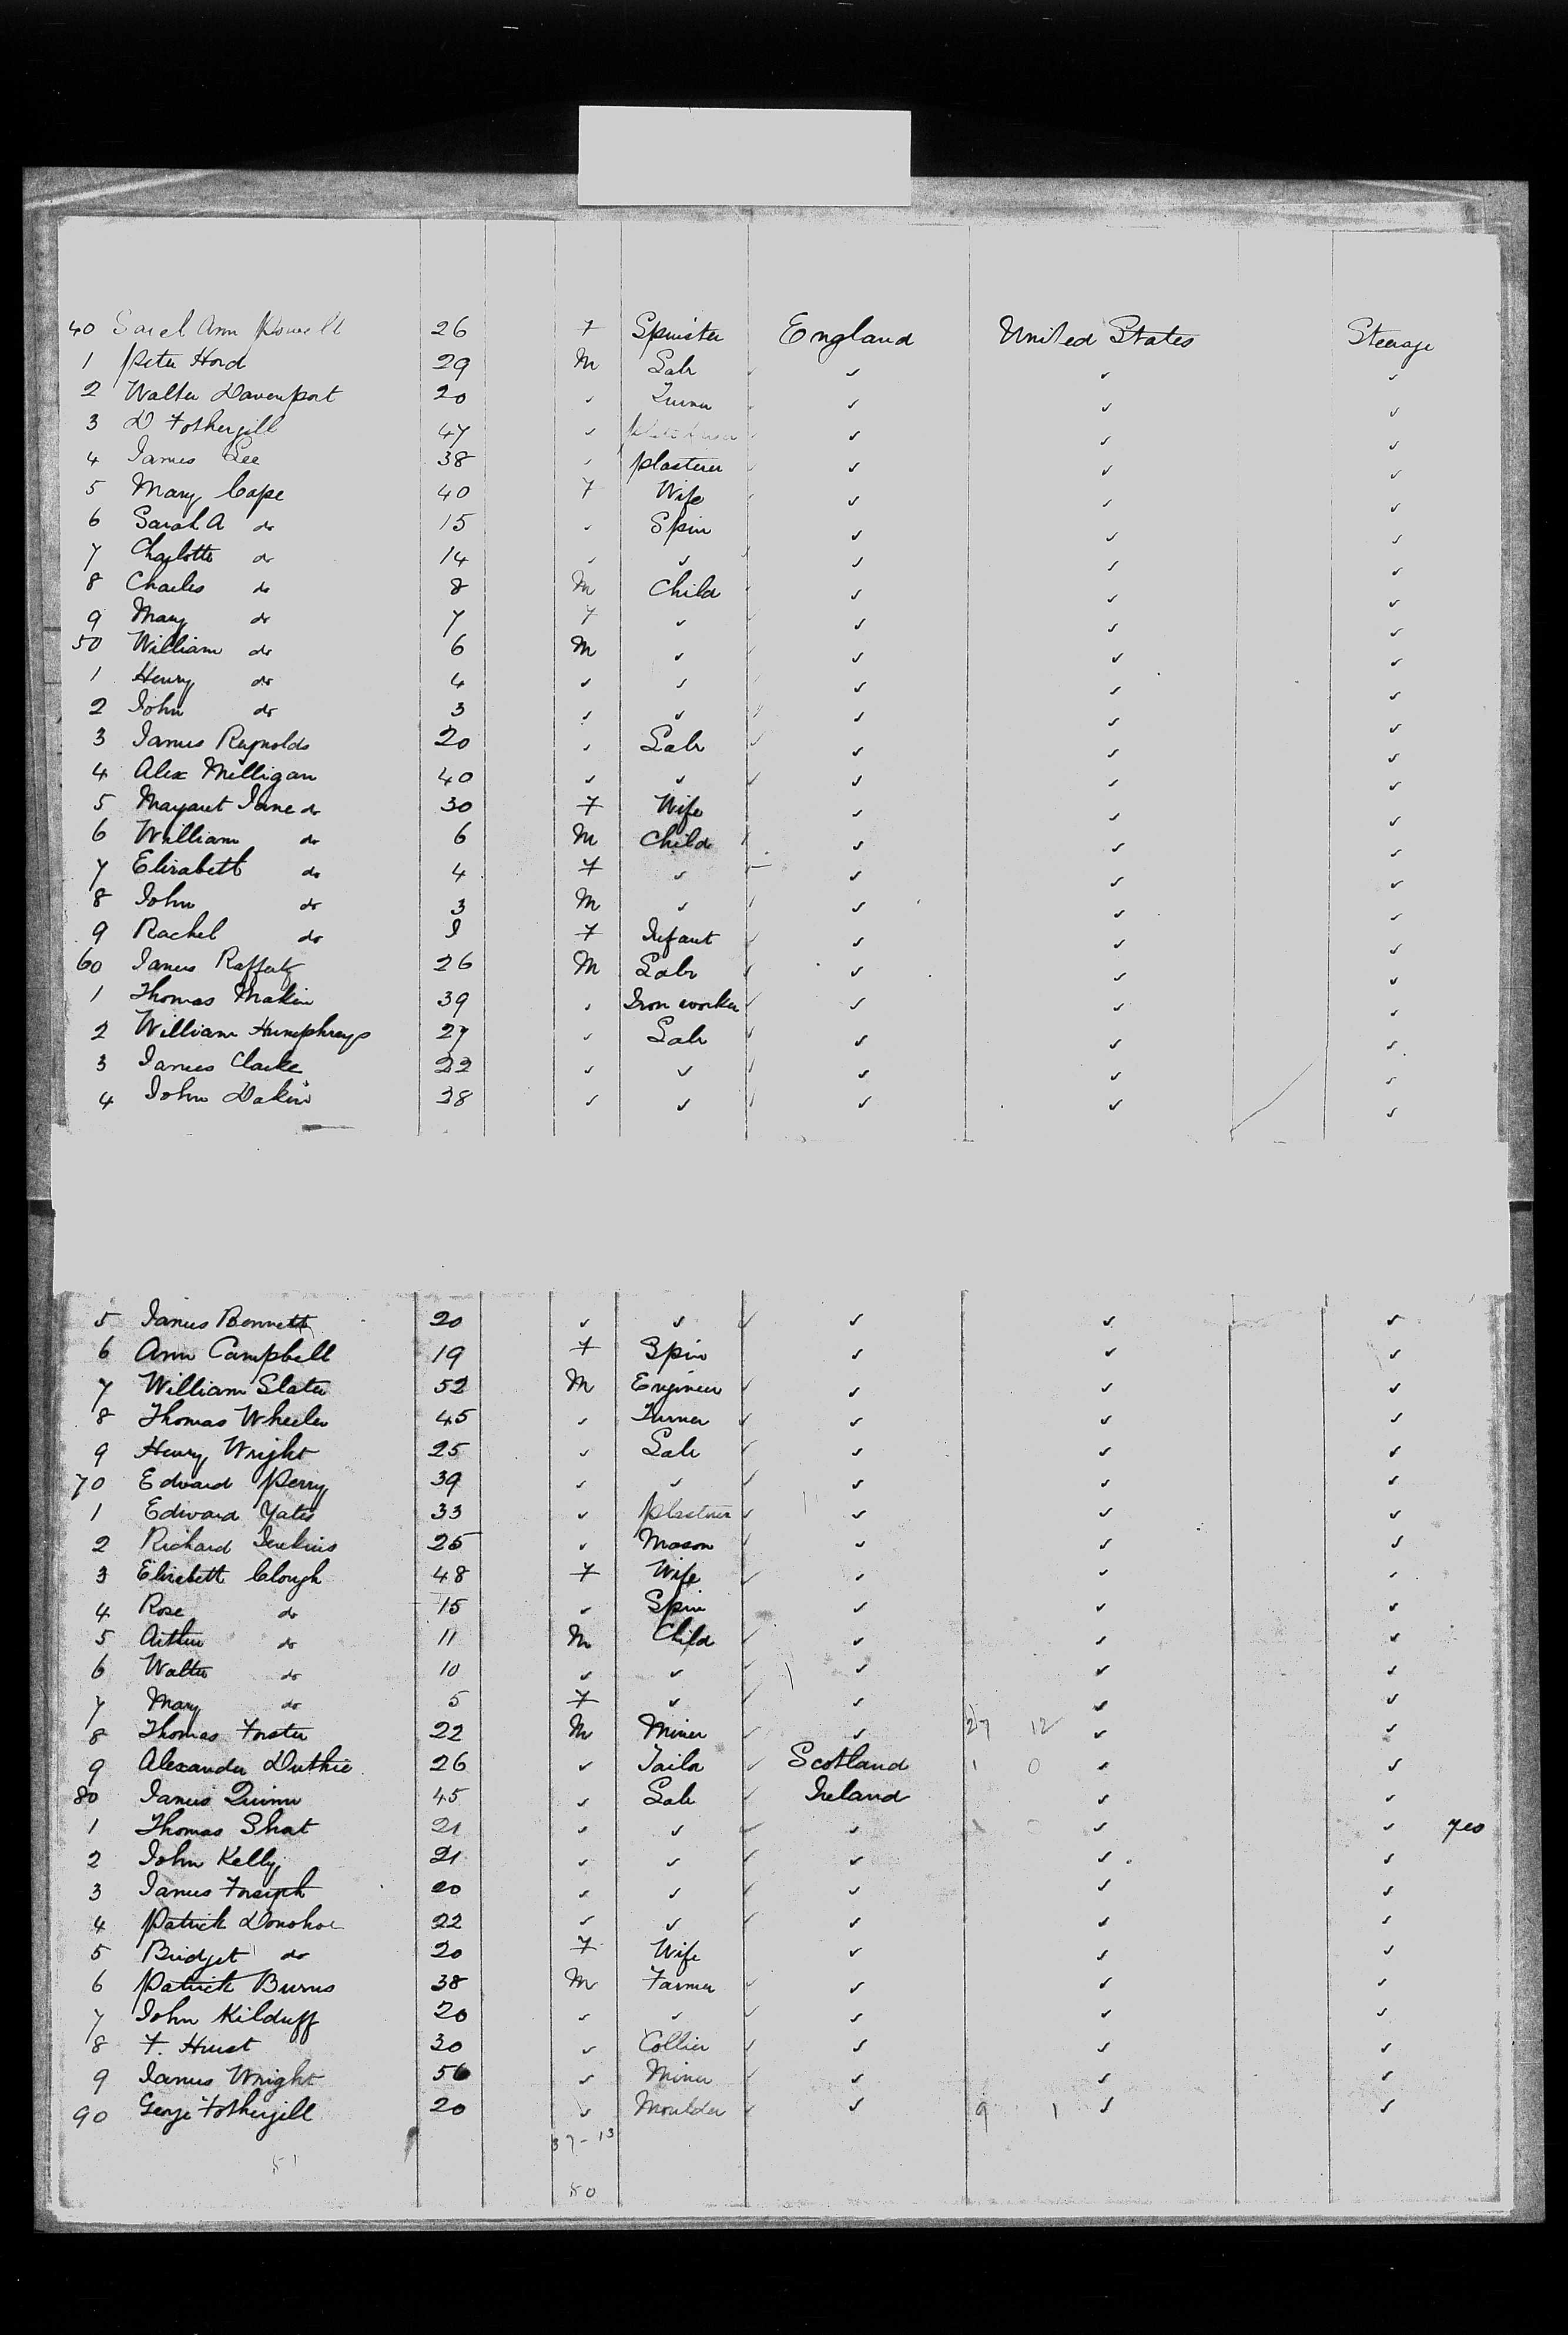 40 Sarel Ann Powell 26 F Spinster England United States Steerage
1 Peter Hord 29 M Labr ✓ ✓ ✓ ✓
2 Walter Davenport 20 ✓ Turner ✓ ✓ ✓ ✓
3 D Fothergill 47 ✓ ✓ ✓ ✓ ✓
4 James Lee 38 ✓ plasterer ✓ ✓ ✓ ✓
5 Mary Cape 40 F Wife ✓ ✓ ✓ ✓
6 Sarah A do 15 ✓ Spin ✓ ✓ ✓
7 Charlotte do 14 ✓ ✓ ✓ ✓ ✓ ✓
8 Charles do 8 M Child ✓ ✓ ✓ ✓
9 Mary do 7 F ✓ ✓ ✓ ✓ ✓
50 William do 6 M ✓ ✓ ✓ ✓ ✓
1 Henry do 4 ✓ ✓ ✓ ✓ ✓ ✓
2 John do 3 ✓ ✓ ✓ ✓ ✓ ✓
3 James Reynolds 20 ✓ Labr ✓ ✓ ✓ ✓
4 Alex Milligan 40 ✓ ✓ ✓ ✓ ✓ ✓
5 Margaret Jane do 30 F Wife ✓ ✓ ✓
6 William do 6 M Child ✓ ✓ ✓ ✓
7 Elizabeth do 4 F ✓ ✓ ✓ ✓
8 John do 3 M ✓ ✓ ✓ ✓ ✓
9 Rachel do F Infant ✓ ✓ ✓ ✓
60 James Rafferty 26 M Labr ✓ ✓ ✓ ✓
1 Thomas Makin 39 ✓ Iron worker ✓ ✓ ✓ ✓
2 William Humphreys 27 ✓ Labr ✓ ✓ ✓ ✓
3 James Clarke 22 ✓ ✓ ✓ ✓ ✓ ✓
4 John Dakin 38 ✓ ✓ ✓ ✓ ✓ ✓
5 James Bennett 20 ✓ ✓ ✓ ✓ ✓ ✓
6 Ann Campbell 19 F Spin ✓ ✓ ✓ ✓
7 William Slater 52 M Engineer ✓ ✓ ✓ ✓
8 Thomas Wheeler 45 ✓ Turner ✓ ✓ ✓ ✓
9 Henry Wright 25 ✓ Labr ✓ ✓ ✓ ✓
70 Edward Perry 39 ✓ ✓ ✓ ✓ ✓ ✓
1 Edward Yates 33 ✓ plasterer ✓ ✓ ✓ ✓
2 Richard Jenkins 25 ✓ Mason ✓ ✓ ✓
3 Elizabeth Clough 48 F Wife ✓ ✓ ✓ ✓
4 Rose do 15 ✓ Spin ✓ ✓ ✓
5 Arthur do 11 M Child ✓ ✓ ✓ ✓
6 Walter do 10 ✓ ✓ ✓ ✓ ✓ ✓
7 Mary do 5 F ✓ ✓ ✓ ✓ ✓
8 Thomas Forster 22 M Miner ✓ ✓ 27 12 ✓ ✓
9 Alexander Duthie 26 ✓ Tailor ✓ Scotland 1 0 ✓ ✓
80 James Quinn 45 ✓ Labr ✓ Ireland ✓ ✓
1 Thomas Shat 21 ✓ ✓ ✓ ✓ ✓ ✓ yes
2 John Kelly 21 ✓ ✓ ✓ ✓ ✓ ✓
3 James 20 ✓ ✓ ✓ ✓ ✓ ✓
4 Patrick Donohoe 22 ✓ ✓ ✓ ✓ ✓ ✓
5 Bridget do 20 F Wife ✓ ✓ ✓
6 Patrick Burns 38 M Farmer ✓ ✓ ✓ ✓
7 John Kilduff 20 ✓ ✓ ✓ ✓ ✓ ✓
8 F. Hurst 30 ✓ Collier ✓ ✓ ✓ ✓
9 James Wright 56 ✓ Miner ✓ ✓ ✓ ✓
90 George Fothergill 20 ✓ Moulder ✓ ✓ 9 1 ✓ ✓
37-13
50